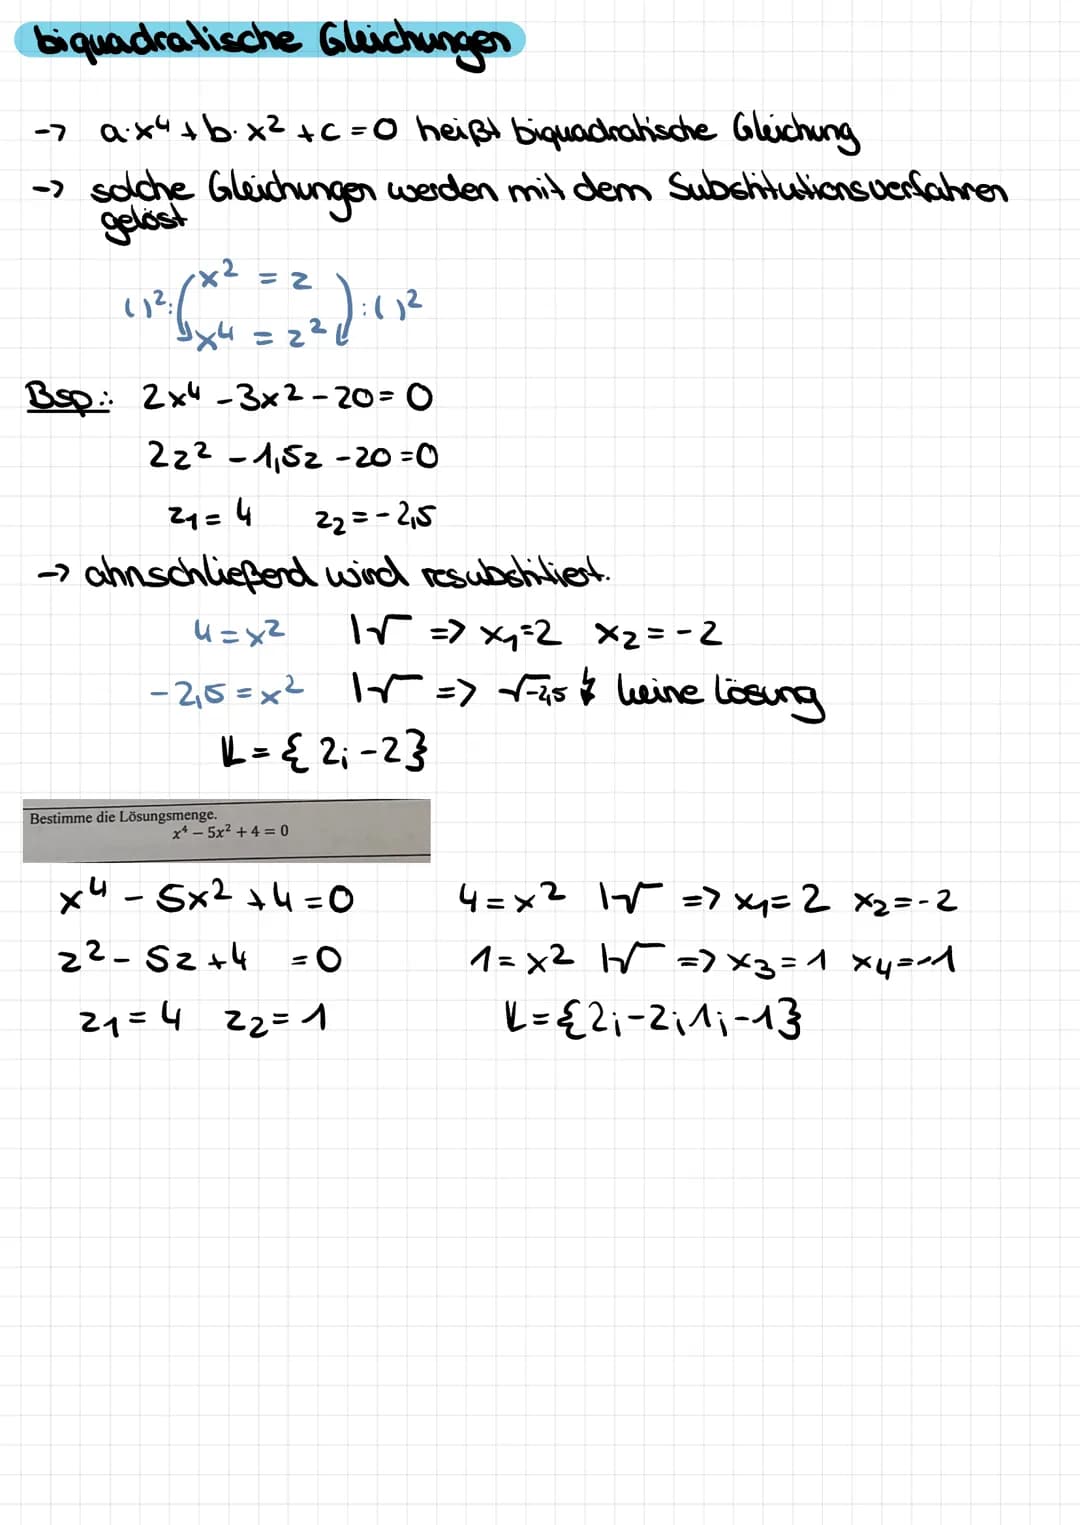 biquadratische Gleichungen
-> a·x⁴ + b·x² + c = 0 heißt biquadratische Gleichung
-> solche Gleichungen werden mit dem Substitutionsverfahren
gelöst
x² = z
( )²: :( )²
x⁴ = z²
Bsp.: 2x⁴ - 3x² - 20 = 0
2z² - 1,5z - 20 = 0
z₁ = 4 z₂ = -2,5
-> ahnschließend wird resubstitiert.
4 = x² |√ => x₁=2 x₂ = -2
-2,5 = x² |√ => √-2,5 ↯ keine Lösung
𝕃 = { 2; -2}
Bestimme die Lösungsmenge.
x⁴ – 5x² + 4 = 0
x⁴ - 5x² + 4 = 0 4 = x² |√ => x₁= 2 x₂=-2
z² - 5z + 4 = 0 1 = x² |√ => x₃ = 1 x₄=-1
z₁ = 4 z₂ = 1 𝕃 = {2;-2;1;-1}